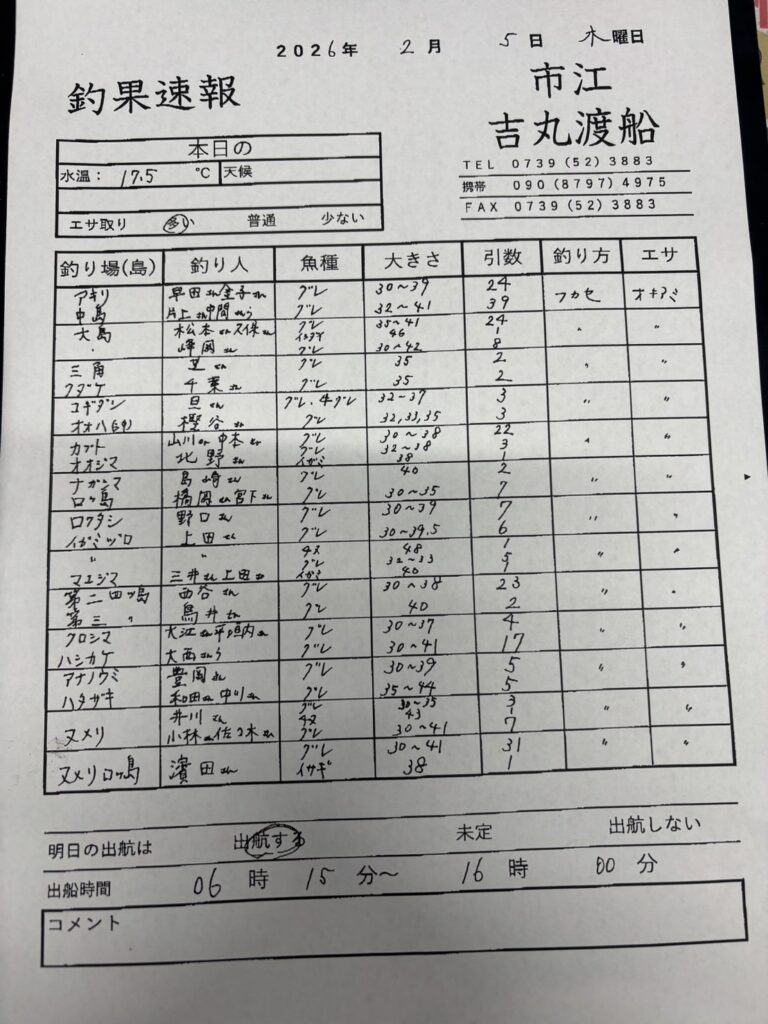 2026年 2月 5日 木曜日
釣果速報
市江
吉丸渡船
TEL 0739(52)3883
携帯 090(8797)4975
FAX 0739(52)3883
本日の
水温： 17.5 ℃ 天候
エサ取り 多い 普通 少ない
釣り場(島) 釣り人 魚種 大きさ 引数 釣り方 エサ
アキリ 早田さん金子さん グレ 30～39 24
中島 片上さん中間さんら グレ 32～41 39 フカセ オキアミ
大島 松本さん久保さん グレ 35～41 24
46 1
〃 峰岡さん グレ 30～42 8
三角 さん グレ 35 2
クダケ 千葉さん グレ 35 2
コギダシ 旦さん グレ、4グレ 32～37 3
オオハ 樫谷さん グレ 32,33,35 3
カブト 山川さん中本さん グレ 30～38 22
オオジマ 北野さん グレ 32～38 3
イガミ 38 1
ナガシマ 島崎さん グレ 40 2
ロク島 橋岡さん宮下さん グレ 30～35 7
ロクダシ 野口さん グレ 30～39 7
イガミツロ 上田さん グレ 30～39.5 6
〃 〃 チヌ 48 1
グレ 32～33 5
マエジマ 三井さん上田さん イガミ 40 1
第二四ツ島 西谷さん グレ 30～38 23
第三 〃 鳥井さん グレ 40 2
クロシマ 大江さん平垣内さん グレ 30～37 4
ハシカケ 大西さんら グレ 30～41 17
アナノウミ 豊岡さん グレ 30～39 5
ハタガキ 和田さん中川さん グレ 35～44 5
井川さん グレ 30～35 3
チヌ 43 1
ヌメリ 小林さん佐々木さん グレ 30～41 7
グレ 30～41 31
ヌメリロク島 濱田さん イサギ 38 1
明日の出航は 出航する 未定 出航しない
出船時間 06時 15分～ 16時 00分
コメント